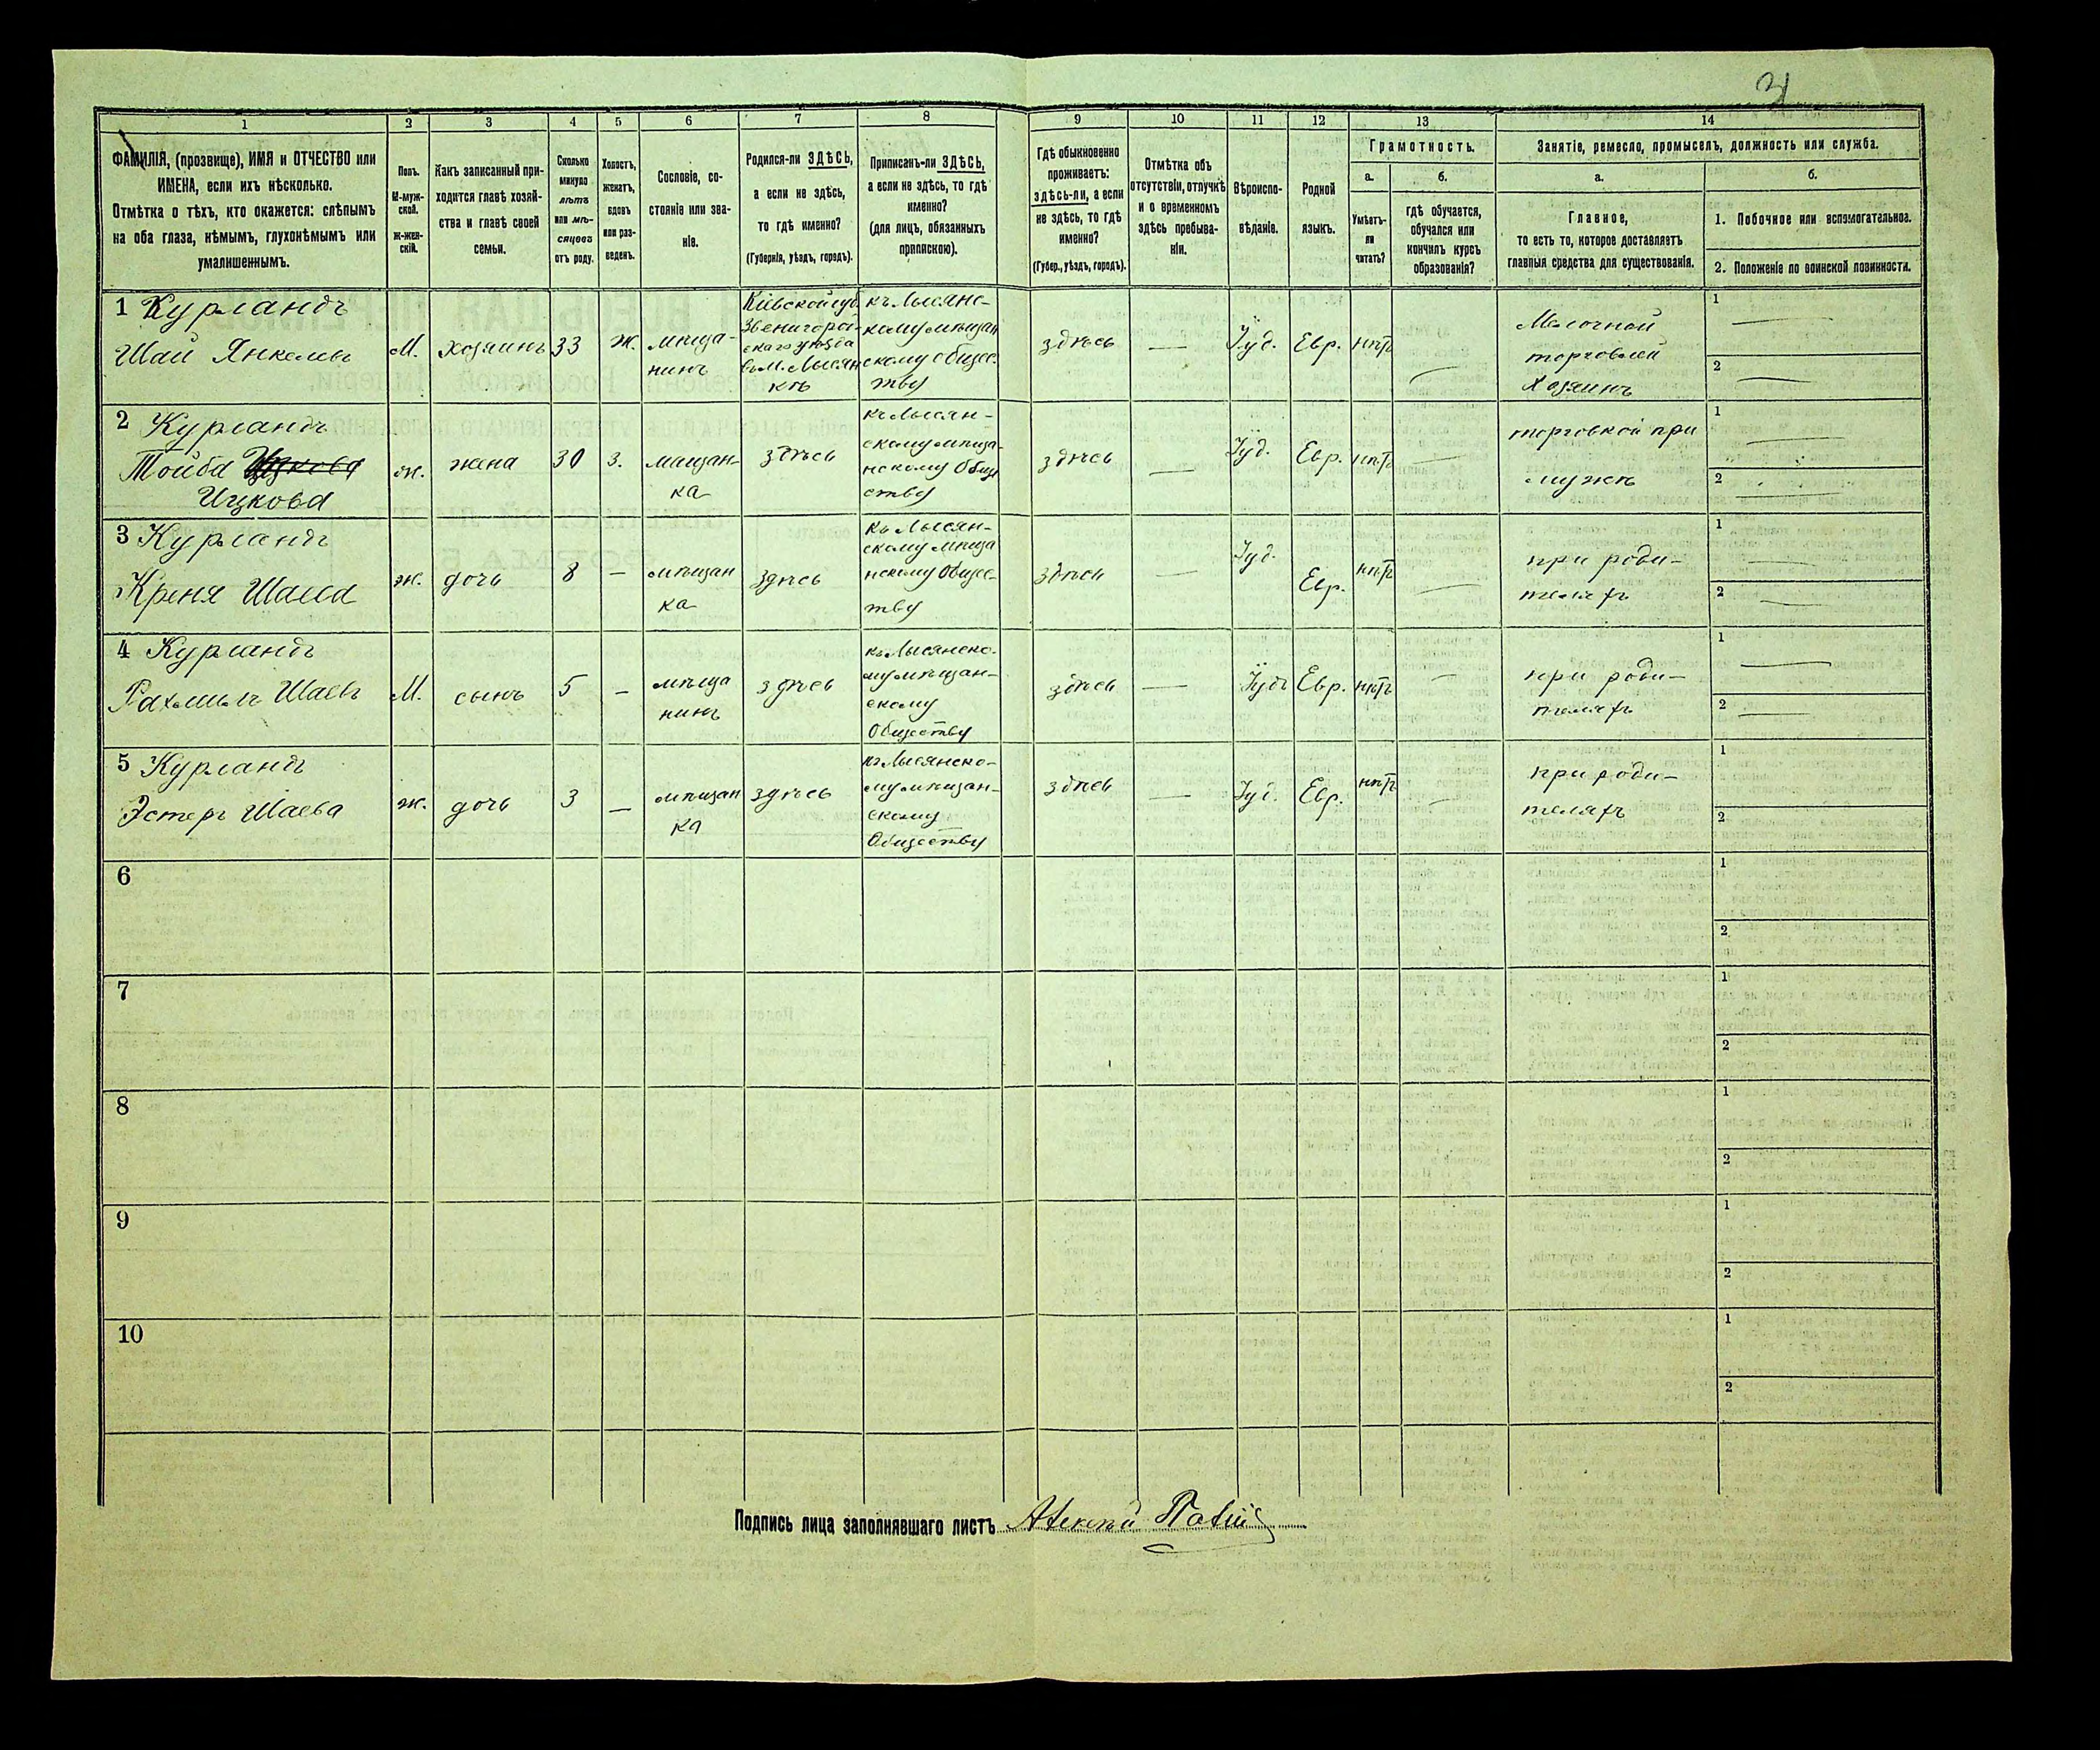 1 2 3 4 5 6 7 8 9 10 11 12 13 14
ФАМИЛІЯ, (прозвище), ИМЯ и ОТЧЕСТВО или
ИМЕНА, если ихъ нѣсколько.
Отмѣтка о тѣхъ, кто окажется: слѣпымъ
на оба глаза, нѣмымъ, глухонѣмымъ или
умалишеннымъ.
Полъ.
М-муж-
ской.
Ж-жен-
скій.
Какъ записанный при-
ходится главѣ хозяй-
ства и главѣ своей
семьи.
Сколько
минуло
лѣтъ
или мѣ-
сяцевъ
отъ роду.
Холостъ,
женатъ,
вдовъ
или раз-
веденъ.
Сословіе, со-
стояніе или зва-
ніе.
Родился-ли ЗДѢСЬ,
а если не здѣсь,
то гдѣ именно?
(Губернія, уѣздъ, городъ).
Приписанъ-ли ЗДѢСЬ,
а если не здѣсь, то гдѣ
именно?
(для лицъ, обязанныхъ
припискою).
Гдѣ обыкновенно
проживаетъ:
здѣсь-ли, а если
не здѣсь, то гдѣ
именно?
(Губер., уѣздъ, городъ).
Отмѣтка объ
отсутствіи, отлучкѣ
и о временномъ
здѣсь пребыва-
ніи.
Вѣроиспо-
вѣданіе.
Родной
языкъ.
Грамотность.
а.
Умѣетъ-
ли
читать?
б.
гдѣ обучается,
обучался или
кончилъ курсъ
образованія?
Занятіе, ремесло, промыселъ, должность или служба.
а.
Главное,
то есть то, которое доставляетъ
главныя средства для существованія.
б.
1. Побочное или вспомогательное.
2. Положеніе по воинской повинности.
1 Курландъ
Шай Янкелевъ
М.
хозяинъ
33
Ж.
мѣща-
нинъ
Кіевской губ.
Звенигород-
скаго уѣзда
въ М. Лысян
кѣ
къ Лысянс-
кому мѣщан
скому общес-
тву
здѣсь
—
Іуд.
Евр.
нѣтъ
—
Мелочной
торговлей
Хозяинъ
1 —
2 —
2 Курландъ
Тойба Ицкова
Ицкова
ж.
жена
30
З.
мѣщан-
ка
здѣсь
къ Лысян-
скому мѣща-
нскому Общe
ству
здѣсь
—
Іуд.
Евр.
нѣтъ
—
торговкой при
мужѣ
1 —
2 —
3 Курландъ
Креня Шаева
ж.
дочь
8
—
мѣщан
ка
здѣсь
къ Лысян-
скому мѣща
нскому Общес-
тву
здѣсь
—
Іуд.
Евр.
нѣтъ
—
при роди-
теляхъ
1 —
2 —
4 Курландъ
Рахмиль Шаевъ
М.
сынъ
5
—
мѣща
нинъ
здѣсь
къ Лысянско-
му мѣщан-
скому
Обществу
здѣсь
—
Іуд.
Евр.
нѣтъ
—
при роди-
теляхъ
1 —
2 —
5 Курландъ
Эстеръ Шаева
ж.
дочь
3
—
мѣщан
ка
здѣсь
къ Лысянско-
му мѣщан-
скому
Обществу
здѣсь
—
Іуд.
Евр.
нѣтъ
—
при роди-
теляхъ
1
2
6
1
2
7
1
2
8
1
2
9
1
2
10
1
2
Подпись лица заполнявшаго листъ